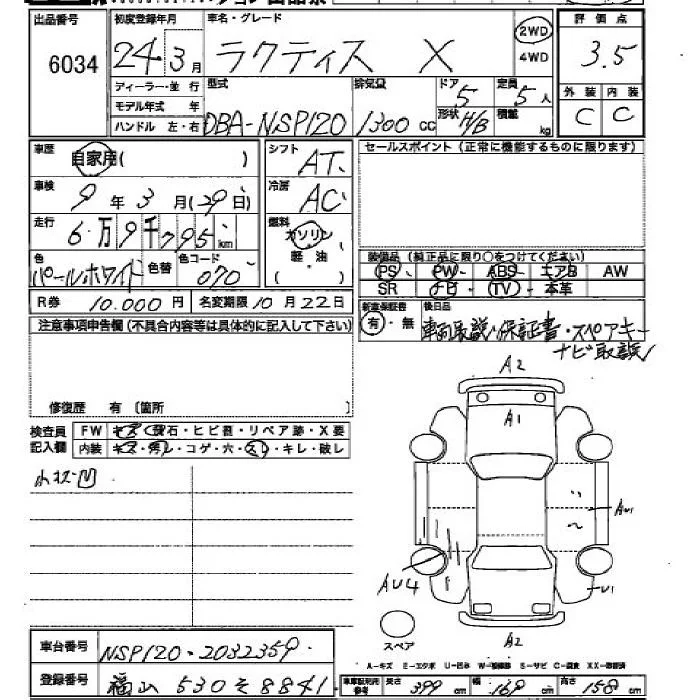 出品番号 初度登録年月 車名・グレード 2WD 評価点
6034 24 3月 ラクティス X 4WD 3.5
ディーラー・並行 型式 排気量 ドア 5 定員 5人 外装 内装
モデル年式 年 C C
ハンドル 左・右 DBA-NSP120 1300 CC 形状 H/B 積載 kg
車歴 自家用( ) シフト AT セールスポイント (正常に機能するものに限ります)
車検 9年3月(29日) 冷房 AC
走行 6万9千795km 燃料 ガソリン
軽油
( )
色 パールホワイト 色替 色コード 070
装備品(純正品に限り○をつけてください)
PS・PW・ABS・エアB AW
SR ナビ・TV・本革
R券 10.000円 名変期限 10月22日
新車保証書 後日品
有・無 車両取説・保証書・スペアキー
ナビ取説
注意事項申告欄 (不具合内容等は具体的に記入して下さい)
修復歴 有 〔箇所 〕
検査員 FW キズ・飛石・ヒビ割・リペア跡・X要
記入欄 内装 キズ・汚レ・コゲ・穴・スレ・キレ・破レ
小キズ凹
A2
A1
AU1
AU4
U1
A2
スペア
車台番号 NSP120-2032359
登録番号 福山 530 そ 8841
A-キズ E-エクボ U-凹み W-補修跡 S-サビ C-腐食 XX-交換済
車検証利用参考 長さ 399cm 幅 169cm 高さ 158cm